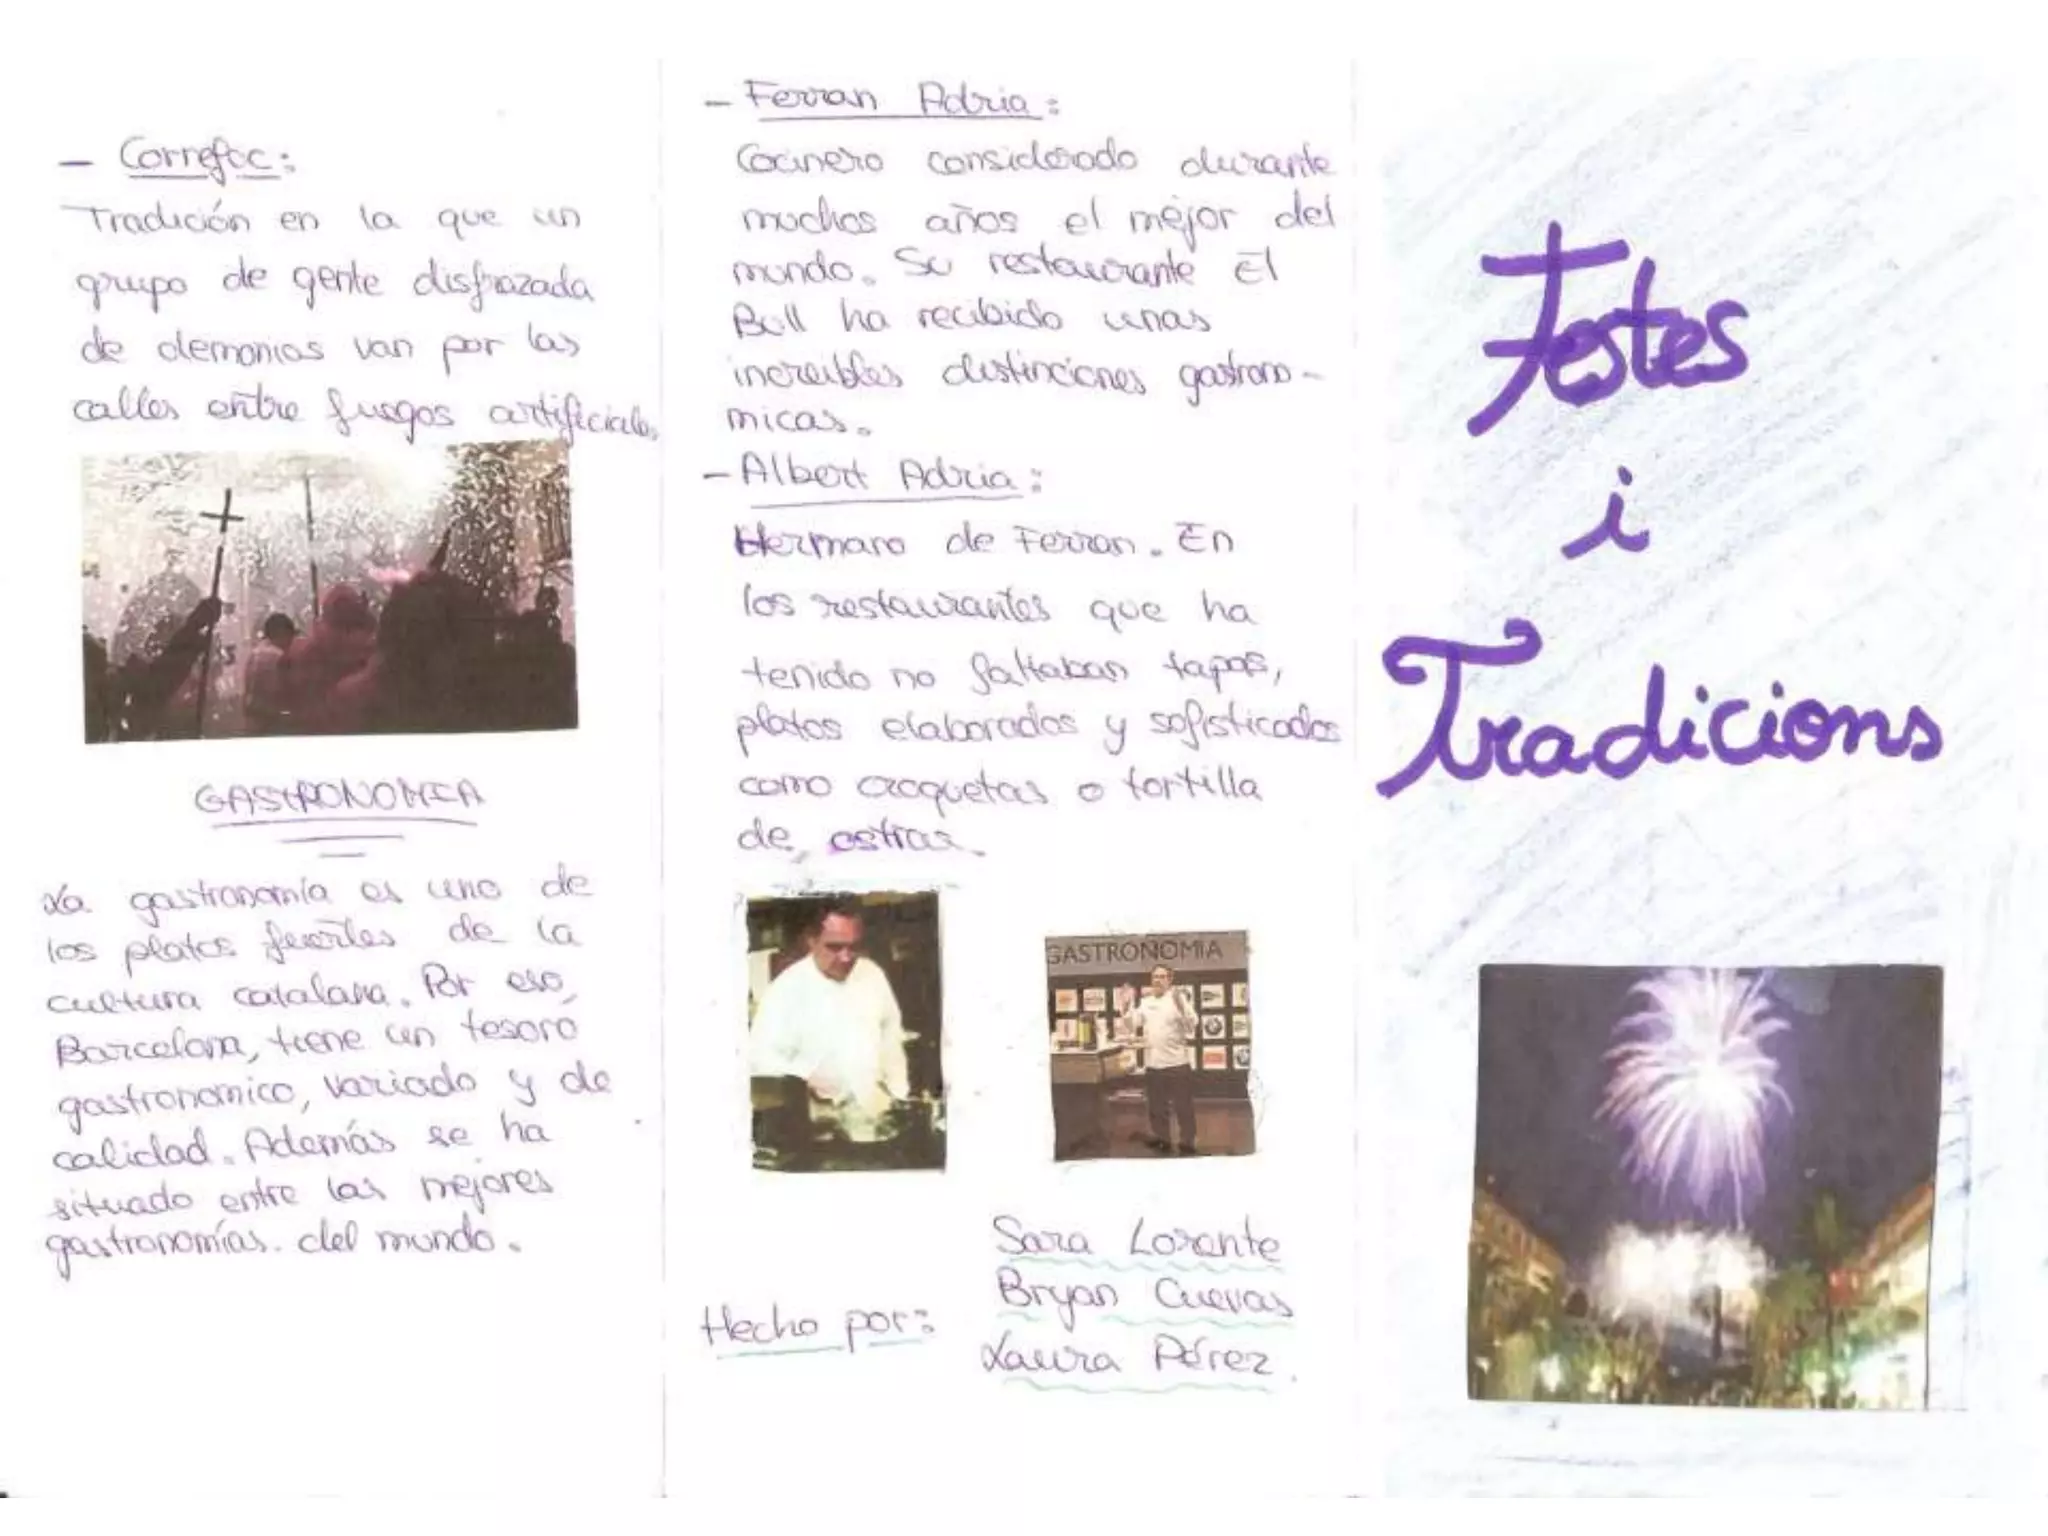 - Correfoc:
Tradición en la que un
grupo de gente disfrazada
de demonios van por las
calles entre fuegos artificiales
GASTRONOMIA
La gastronomía es uno de
los platos fuertes de la
cultura catalana. Por eso,
Barcelona, tiene un tesoro
gastronomico, variado y de
calidad. Además se ha
situado entre las mejores
gastronomías. del mundo.
- Ferran Adria:
Cocinero considerado durante
muchos años el mejor del
mundo. Su restaurante El
Bull ha recibido unas
increibles distinciones gastrono-
micas.
- Albert Adria:
Hermano de Ferran. En
los restaurantes que ha
tenido no faltaban tapas,
platos elaborados y sofisticados
como croquetas o tortilla
de ostras.
GASTRONOMIA
Hecho por:
Sara Lorante
Bryan Cuevas
Laura Pérez.
Festes
i
Tradicions